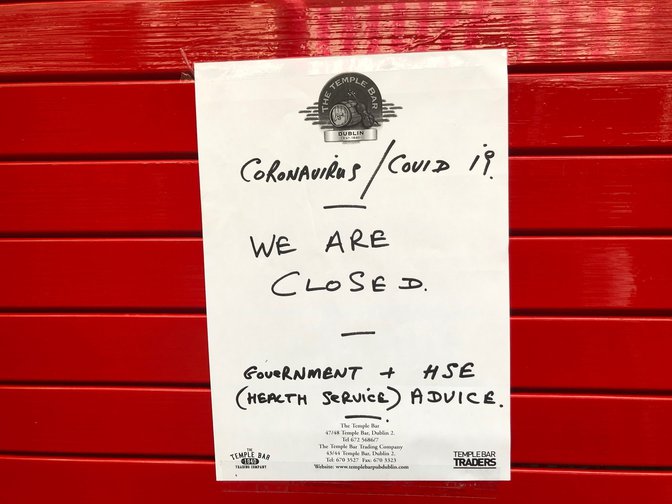 THE TEMPLE BAR
DUBLIN
CORONAVIRUS / COVID 19.
WE ARE
CLOSED.
GOVERNMENT + HSE
(HEALTH SERVICE) ADVICE.
The Temple Bar
47/48 Temple Bar, Dublin 2.
Tel 672 5686/7
The Temple Bar Trading Company
43/44 Temple Bar, Dublin 2.
Tel: 670 3527 Fax: 670 3323
Website: www.templebarpubdublin.com
TEMPLE BAR
1840
TRADING COMPANY
TEMPLE BAR
TRADERS